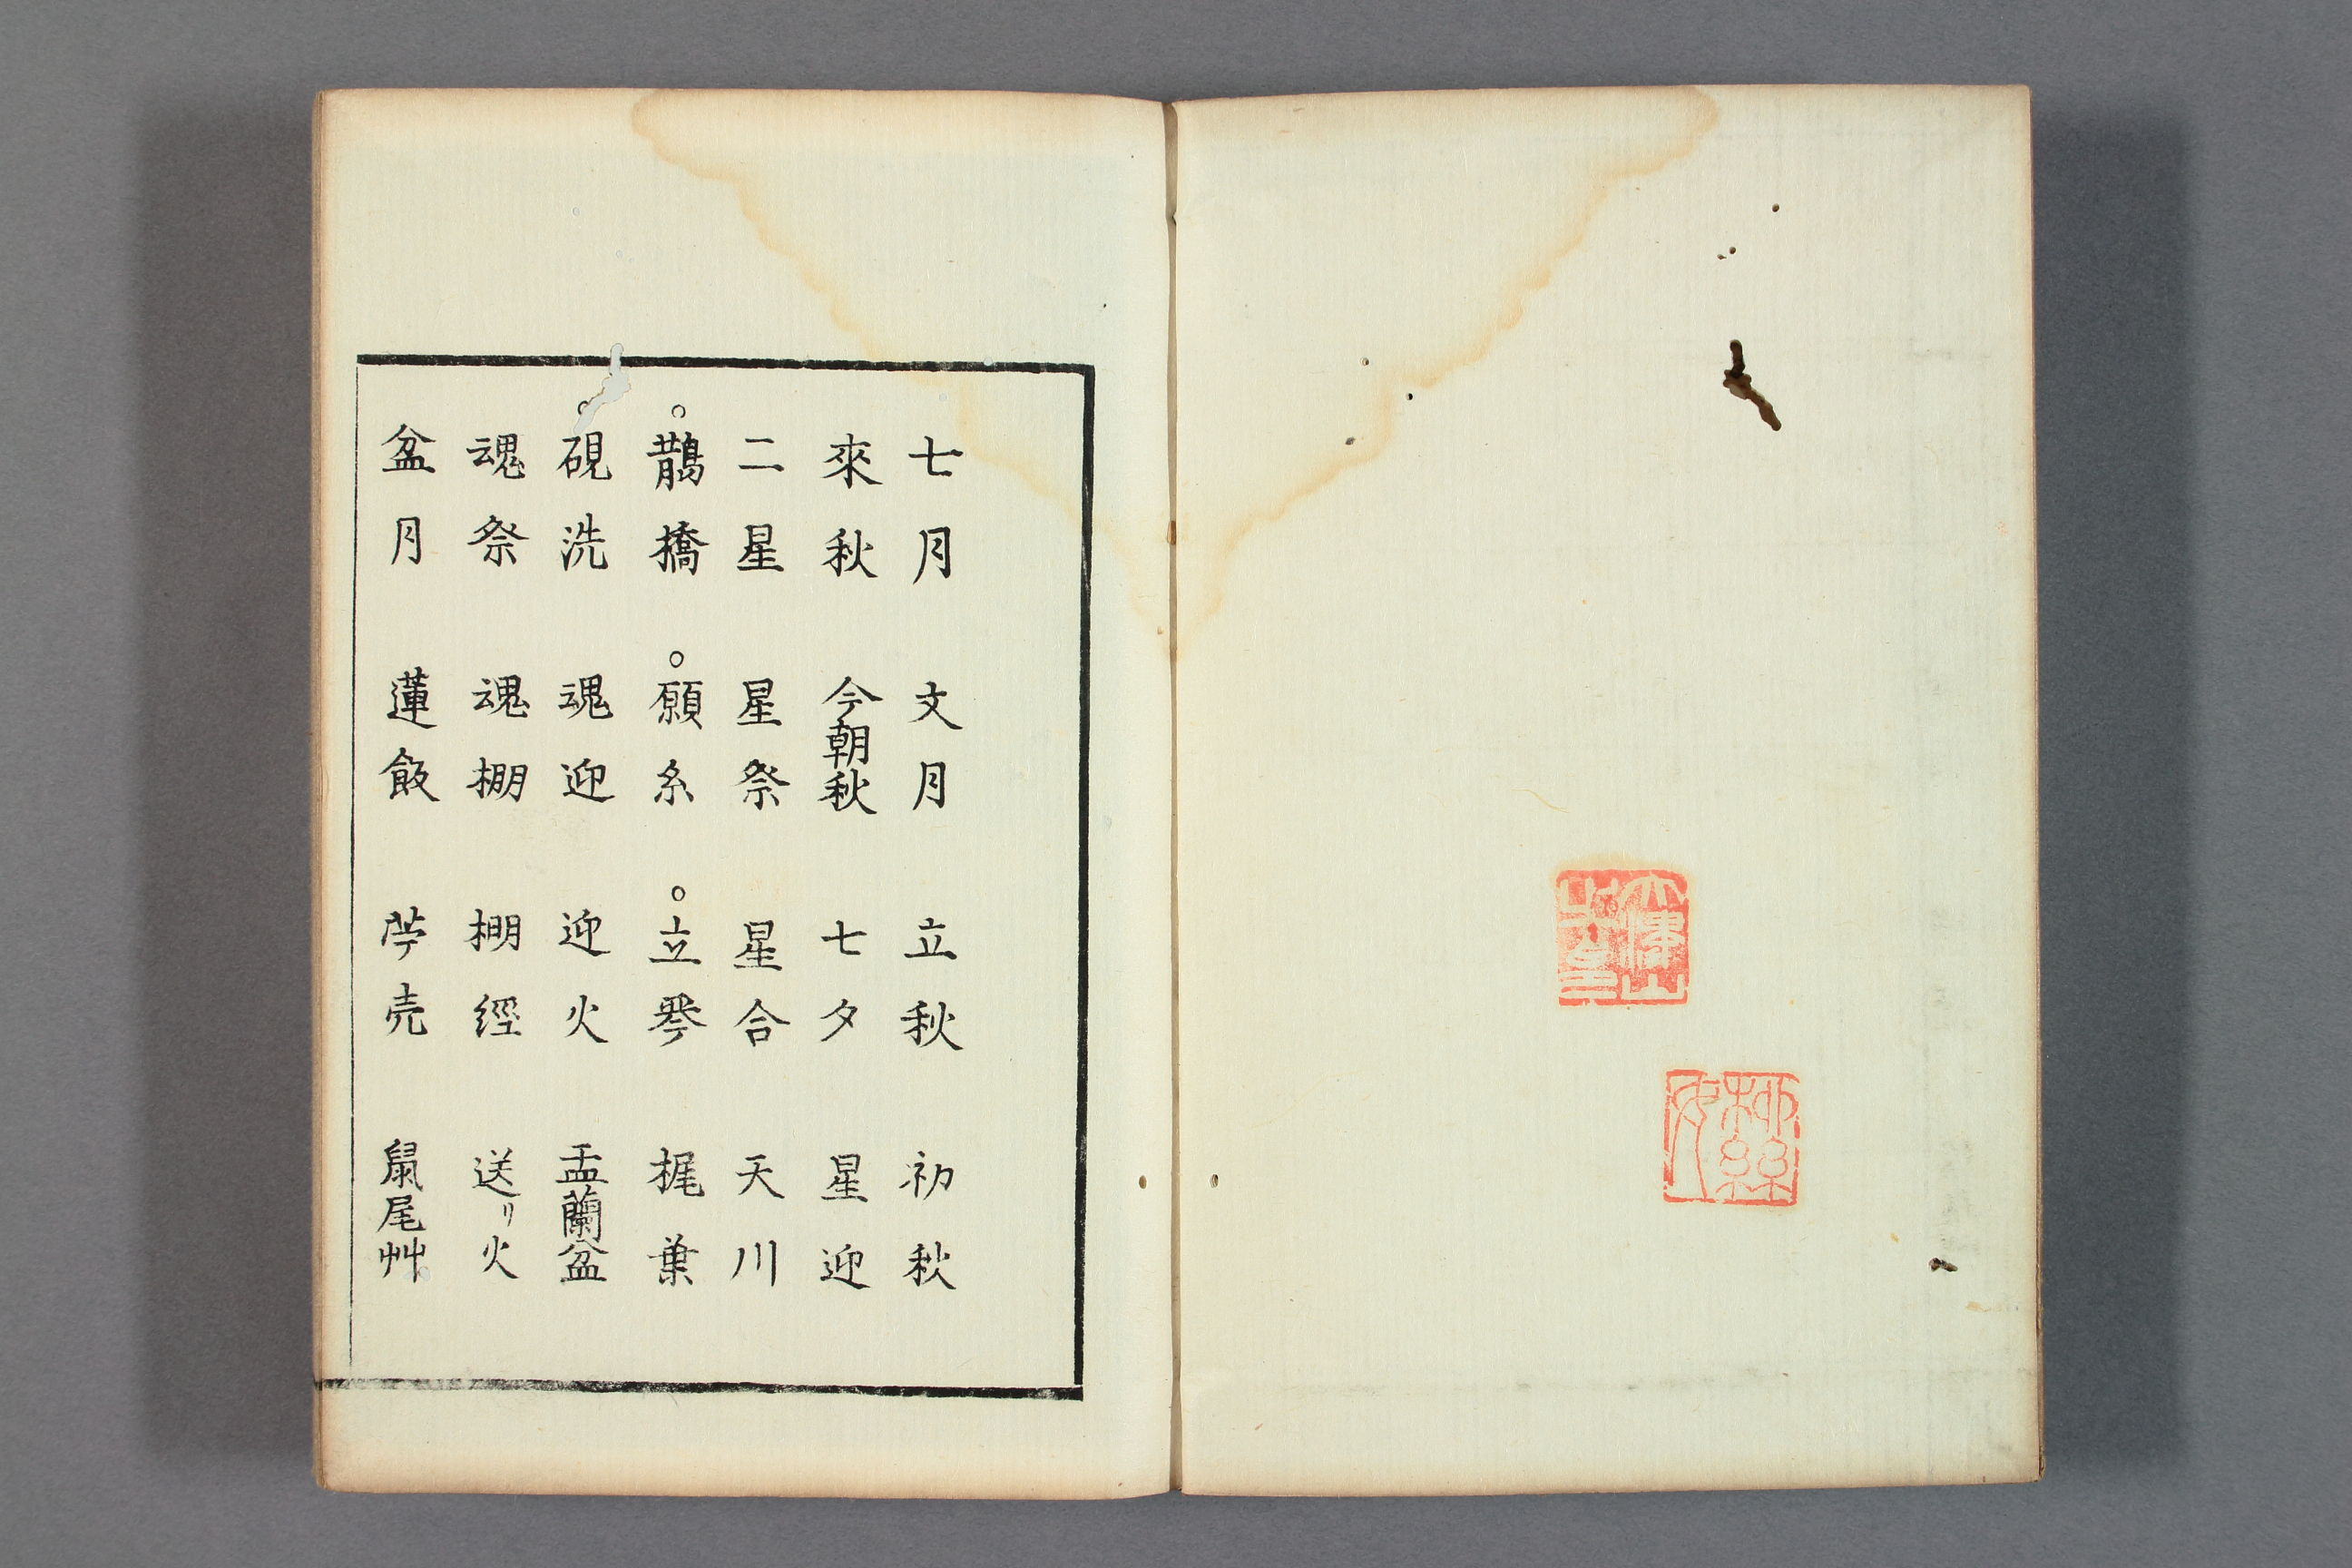 七月　文月　立秋　初秋
來秋　今朝秋　七夕　星迎
二星　星祭　星合　天川
○鵲橋　○願糸　○立琴　梶葉
○硯洗　魂迎　迎火　盂蘭盆
魂祭　魂棚　棚經　送リ火
盆月　蓮飯　苧売　鼠尾艸